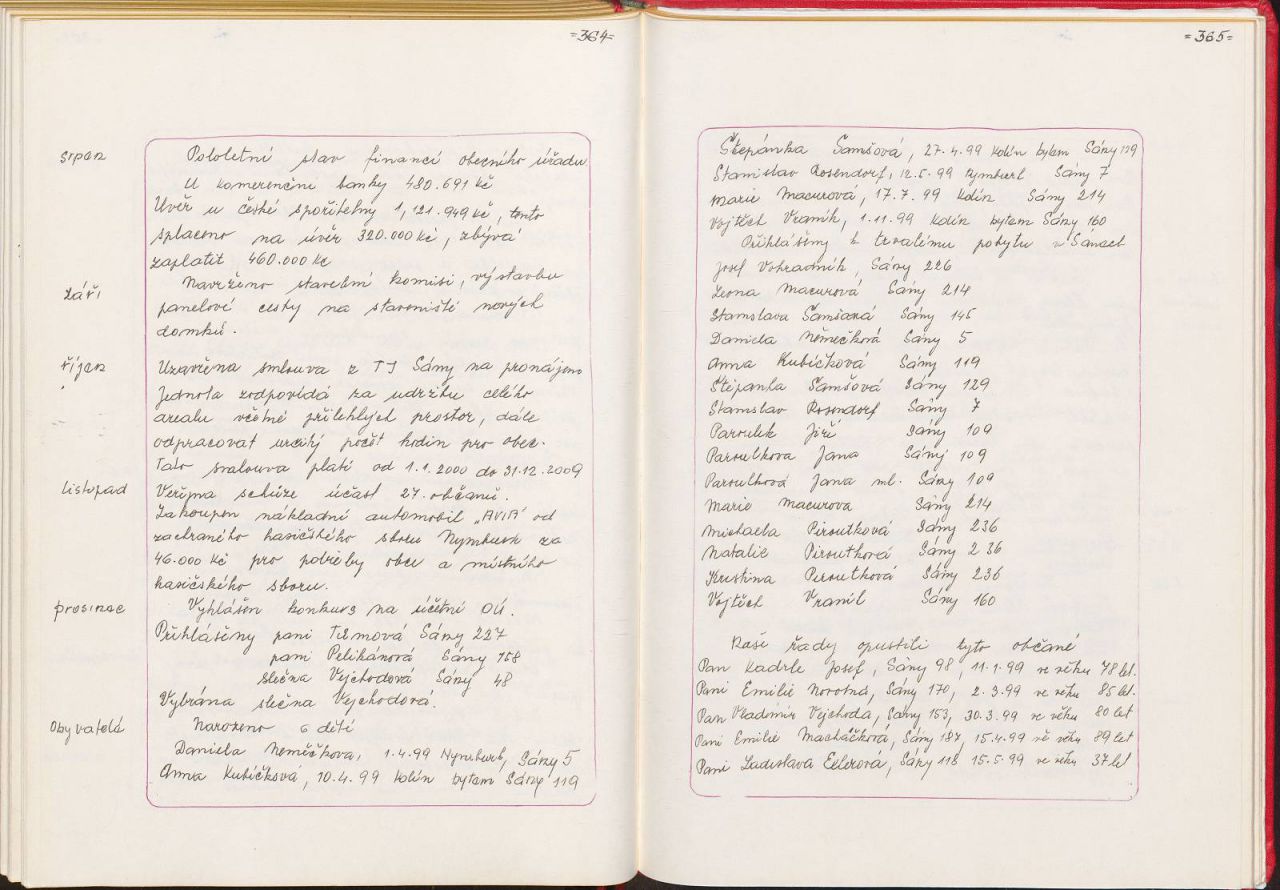 =364=
srpen
Pololetní stav financí obecního úřadu
U komerenční banky 480.691 kč
Úvěr u české spořitelny 1,121.949 kč, tento
splaceno na úvěr 320.000 kč, zbývá
zaplatit 460.000 kč
září
Navrženo stavební komisí, výstavbu
panelové cesty na staveniště nových
domků.
říjen
Uzavřena smlouva z TJ Sány na pronájem
Jednota zodpovídá za udržbu celého
arealu včetně přilehlých prostor, dále
odpracovat určitý počet hodin pro obec.
Tato smlouva platí od 1.1.2000 do 31.12.2009
listopad
Veřejna schůze účast 27. občanů.
Zakoupen nákladní automobil „AVIA" od
zachraného hasičského sboru Nymburk za
46.000 kč pro potřeby obce a místního
hasičského sboru.
prosinec
Vyhlášen konkurs na účetní OÚ.
Přihlášeny paní Tůmová Sány 227
paní Pelikánová Sány 158
slečna Vejchodová Sány 48
Vybrána slečna Vejchodová.
Obyvatelé
Narozeno 6 dětí
Daniela Něměčkova, 1.4.99 Nymburk, Sány 5
Anna Kubíčková, 10.4.99 Kolín bytem Sány 119
=365=
Štepánka Samšová, 27.4.99 Kolín bytem Sány 129
Stanislav Rosendorf, 12.5.99 Nymburk Sány 7
Marie Macurová, 17.7.99 Kolín Sány 214
Vojtěch Vraník, 1.11.99 Kolín bytem Sány 160
Přihlášeny k trvalému pobytu v Sánech
Josef Vohradník, Sány 226
Leona Macurová Sány 214
Stanislava Samšaná Sány 145
Daniela Němečková Sány 5
Anna Kubíčková Sány 119
Štěpanka Samšová Sány 129
Stanislav Rosendorf Sány 7
Paroulek Jiří Sány 109
Paroulkova Jana Sány 109
Paroulková Jana ml. Sány 109
Marie Macurova Sány 214
Michaela Piroutková Sány 236
Natalie Piroutková Sány 236
Kristina Piroutková Sány 236
Vojtěch Vraník Sány 160
Naše řady opustili tyto občané
Pan Kadrle Josef, Sány 98, 11.1.99 ve věku 78 let.
Paní Emilie Novotná, Sány 170, 2.3.99 ve věku 85 let.
Pan Vladimír Vejchoda, Sány 153, 30.3.99 ve věku 80 let
Paní Emilie Macháčková, Sány 187, 15.4.99 vě věku 89 let
Paní Ladislava Eclerová, Sány 118 15.5.99 ve věku 37 let